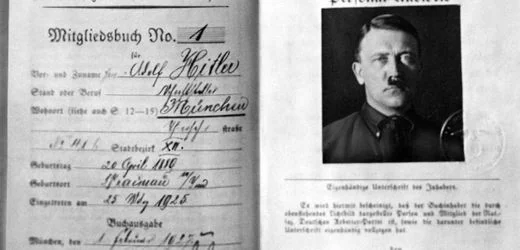 Mitgliedsbuch No. 1
für
Vor- und Zuname Adolf Hitler
Stand oder Beruf Schriftsteller
Wohnort (siehe auch S. 12—15) München
straße
No 41 Stadtbezirk XII.
Geburtstag 20 April 1889
Geburtort Braunau
Eingetreten am 25 1925
Buchausgabe
München, den 1 Februar 1927
Eigenhändige Unterschrift des Inhabers.
Es wird hiermit bescheinigt, daß der Buchinhaber die durch
obenstehendes Lichtbild dargestellte Person und Mitglied der Nat.
Soz. Deutschen Arbeiter-Partei ist, sowie die darunter befindliche
Unterschrift eigenhändig vollzogen hat.